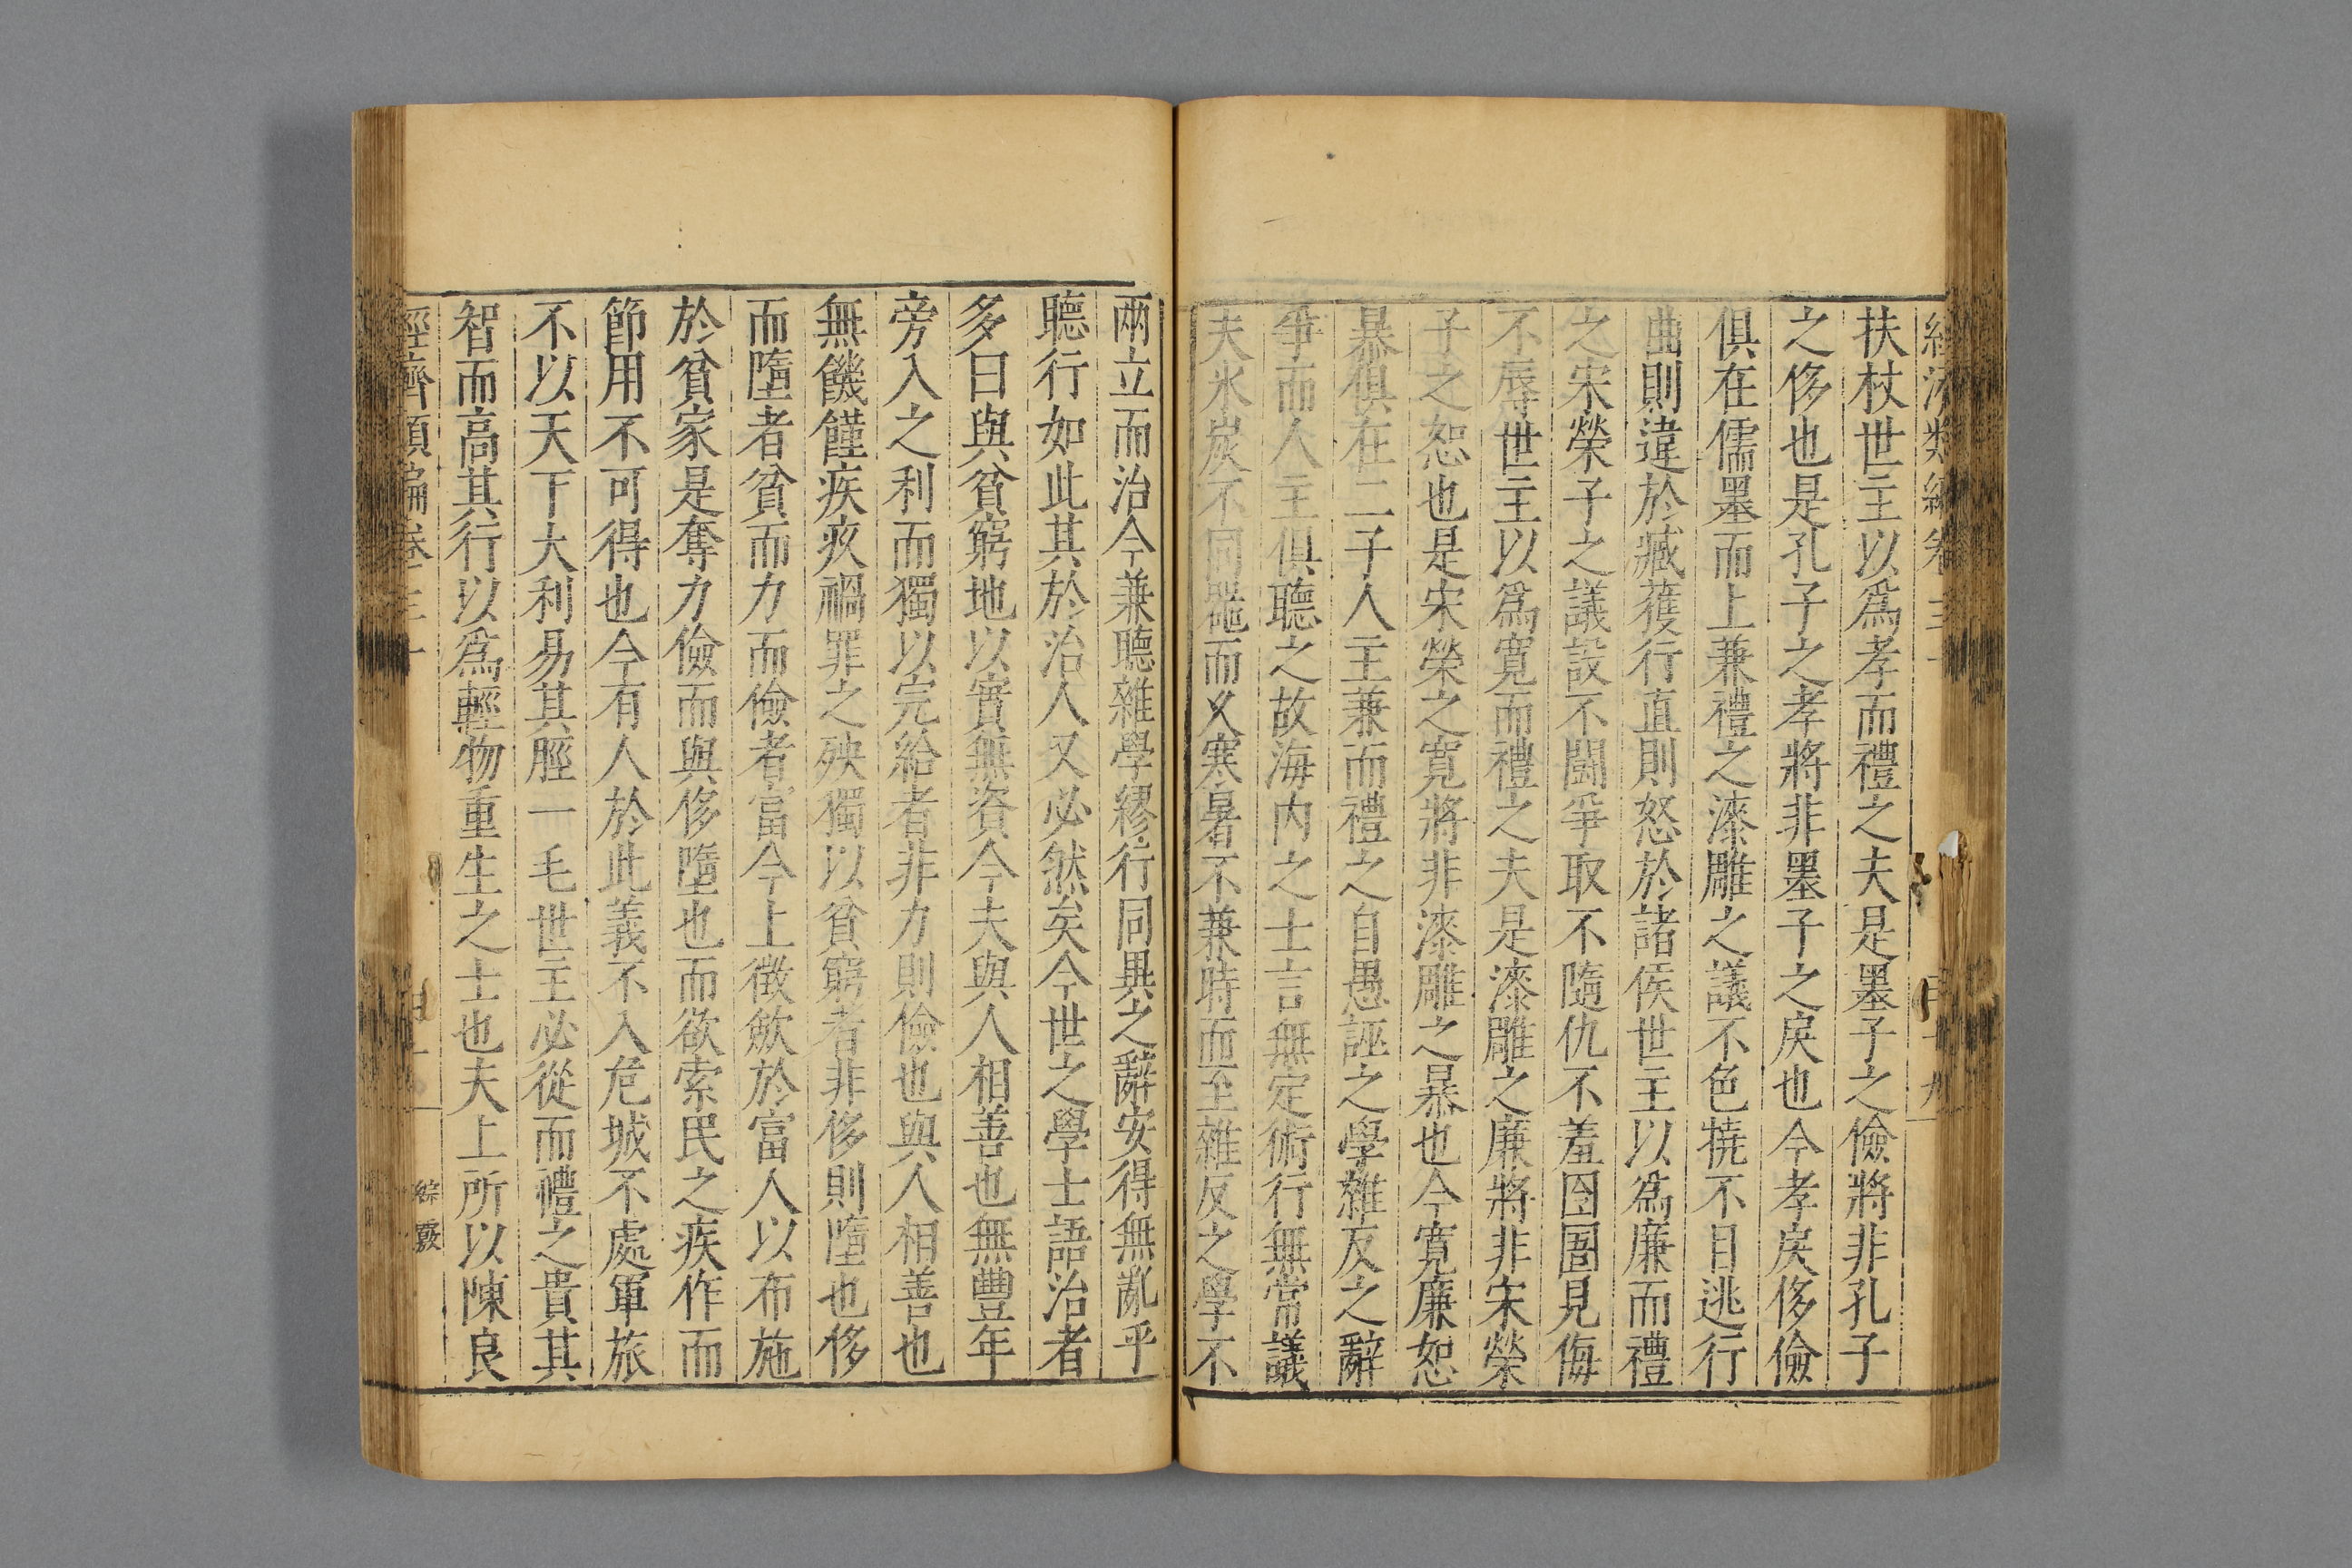 扶杖世主以爲孝而禮之夫是墨子之儉將非孔子
之侈也是孔子之孝將非墨子之戾也今孝戾侈儉
俱在儒墨而上兼禮之漆雕之議不色撓不目逃行
曲則違於臧獲行直則怒於諸侯世主以爲廉而禮
之宋榮子之議設不鬪爭取不隨仇不羞囹圄見侮
不辱世主以爲寬而禮之夫是漆雕之廉將非宋榮
子之恕也是宋榮之寬將非漆雕之暴也今寬廉恕
暴俱在二子人主兼而禮之自愚誣之學雜反之辭
爭而人主俱聽之故海內之士言無定術行無常議
夫氷炭不同器而乆寒暑不兼時而至雜反之學不
兩立而治今兼聽雜學繆行同異之辭安得無亂乎
聽行如此其於治人又必然矣今世之學士語治者
多曰與貧窮地以實無資今夫與人相善也無豐年
旁入之利而獨以完給者非力則儉也與人相善也
無饑饉疾疚禍罪之殃獨以貧窮者非侈則墮也侈
而墮者貧而力而儉者富今上徵斂於富人以布施
於貧家是奪力儉而與侈墮也而欲索民之疾作而
節用不可得也今有人於此義不入危城不處軍旅
不以天下大利易其脛一毛世主必從而禮之貴其
智而高其行以爲輕物重生之士也夫上所以陳良
經濟類編卷三十
綜覈